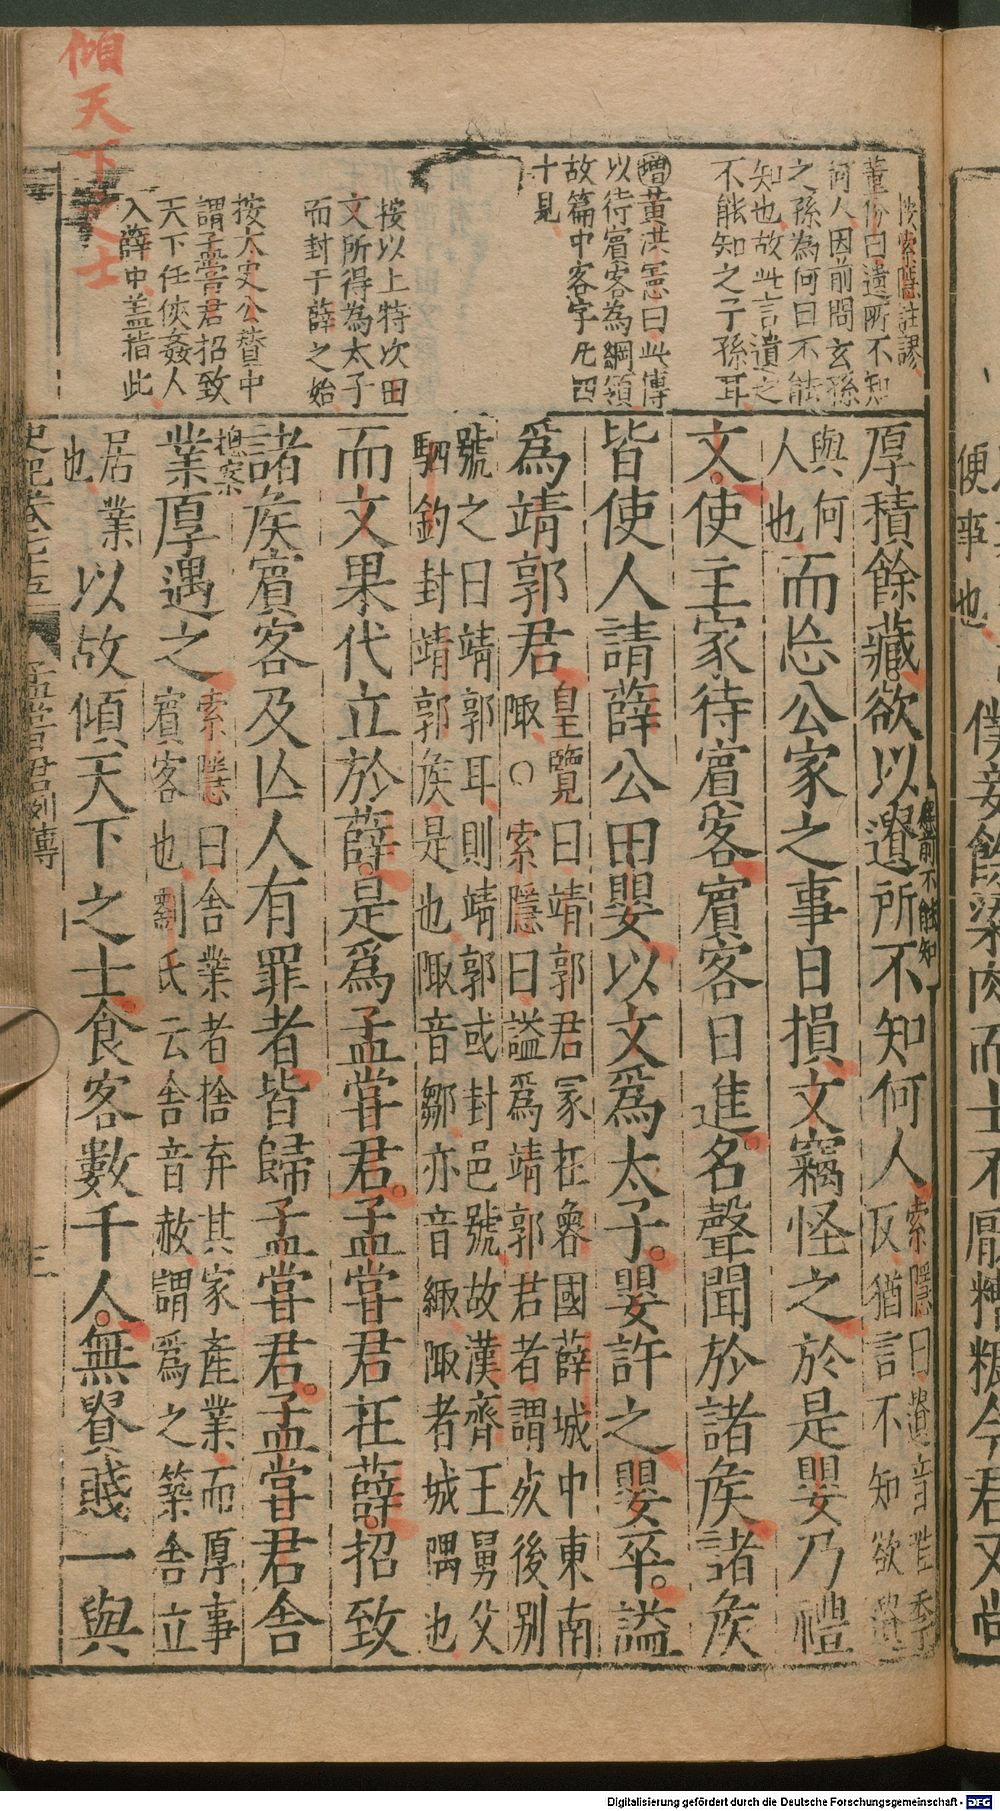 便事也
僕妾餘粱肉而士不厭糟糠今君又尚
按索隱註謬
董份曰遺所不知
何人因前問玄孫
之孫為何曰不能
知也故此言遺之
不能知之子孫耳
增黄洪憲曰此傳
以待賓客為綱領
故篇中客字凡四
十見
按以上特次田
文所得為太子
而封于薛之始
按太史公贊中
謂孟嘗君招致
天下任俠姦人
入薛中盖指此
傾天下之士
應前不能知
厚積餘藏欲以遺所不知何人
索隱曰遺音唯季
反猶言不知欲遺
與何
人也
而忘公家之事日損文竊怪之於是嬰乃禮
文使主家待賓客賓客日進名聲聞於諸侯諸侯
皆使人請薛公田嬰以文爲太子嬰許之嬰卒謚
爲靖郭君
皇覽曰靖郭君冢在魯國薛城中東南
陬○索隱曰謚爲靖郭君者謂死後别
號之曰靖郭耳則靖郭或封邑號故漢齊王舅父
駟鈞封靖郭侯是也陬音鄒亦音緅陬者城隅也
而文果代立於薛是爲孟嘗君孟嘗君在薛招致
諸侯賓客及亾人有罪者皆歸孟嘗君孟嘗君舍
總案
業厚遇之
索隱曰舍業者捨弃其家產業而厚事
賓客也劉氏云舍音赦謂爲之築舍立
居業
也
以故傾天下之士食客數千人無貴賤一與
史記卷七十五
孟嘗君列傳
三
Digitalisierung gefördert durch die Deutsche Forschungsgemeinschaft - DFG